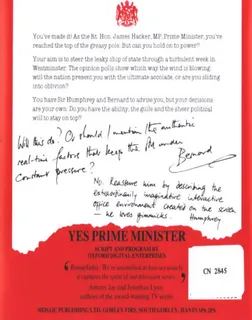 You've made it! As the Rt. Hon. James Hacker, MP, Prime Minister, you've
reached the top of the greasy pole. But can you hold on to power?
Your aim is to steer the leaky ship of state through a turbulent week in
Westminster. The opinion polls show which way the wind is blowing:
will the nation present you with the ultimate accolade, or are you sliding
into oblivion?
You have Sir Humphrey and Bernard to advise you, but your decisions
are your own. Do you have the ability, the guile and the sheer political
will to stay on top?
Will this do? Or should I mention the authentic
real-time factors that keep the PM under
constant pressure?
Bernard
No. Reassure him by describing the
extraordinarily imaginative interactive
office environment created on the screen
— he loves gimmicks.
Humphrey
YES PRIME MINISTER
SCRIPT AND PROGRAM BY
OXFORD DIGITAL ENTERPRISES
Antony Jay and Jonathan Lynn
authors of the award-winning TV series
CN 2845